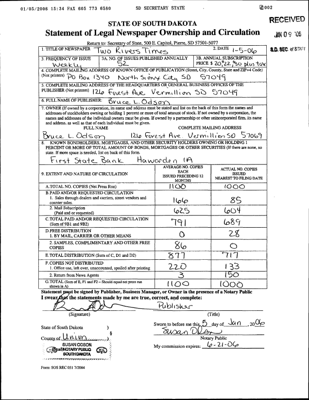 01/05/2006 15:34 FAX 605 773 6580 SD SECRETARY STATE 002
RECEIVED
JAN 09 '06
S.D. SEC. OF STATE
STATE OF SOUTH DAKOTA
Statement of Legal Newspaper Ownership and Circulation
Return to: Secretary of State, 500 E. Capitol, Pierre, SD 57501-5077
1. TITLE OF NEWSPAPER Two Rivers Times 2. DATE 1-5-06
3. FREQUENCY OF ISSUE Weekly
3A. NO. OF ISSUES PUBLISHED ANNUALLY 52
3B. ANNUAL SUBSCRIPTION PRICE $
4. COMPLETE MAILING ADDRESS OF KNOWN OFFICE OF PUBLICATION (Street, City, County, State and ZIP+4 Code)
(Not printers) PO Box 1340 North Sioux City SD 57049
5. COMPLETE MAILING ADDRESS OF THE HEADQUARTERS OR GENERAL BUSINESS OFFICES OF THE
PUBLISHER (Not printer) 126 Forest Ave. Vermillion SD
6. FULL NAME OF PUBLISHER: Bruce L. Odson
7. OWNER (If owned by a corporation, its name and address must be stated and list on the back of this form the names and
addresses of stockholders owning or holding 1 percent or more of total amount of stock. If not owned by a corporation, the
names and addresses of the individual owners must be given. If owned by a partnership or other unincorporated firm, its name
and address, as well as that of each individual must be given.
FULL NAME COMPLETE MAILING ADDRESS
Bruce L. Odson 126 Forest Ave Vermillion SD 57069
8. KNOWN BONDHOLDERS, MORTGAGEES, AND OTHER SECURITY HOLDERS OWNING OR HOLDING 1
PERCENT OR MORE OF TOTAL AMOUNT OF BONDS, MORTGAGES OR OTHER SECURITIES (If there are none, so
state. If more space is needed, list on back of this form.
First State Bank Hawarden IA
9. EXTENT AND NATURE OF CIRCULATION
AVERAGE NO. COPIES EACH ISSUES PRECEDING 12 MONTHS
ACTUAL NO. COPIES ISSUED NEAREST TO FILING DATE
A. TOTAL NO. COPIES (Net Press Run) 1100 1000
B. PAID AND/OR REQUESTED CIRCULATION
1. Sales through dealers and carriers, street vendors and
counter sales 166 85
2. Mail Subscription
(Paid and or requested) 625 604
C. TOTAL PAID AND/OR REQUESTED CIRCULATION
(Sum of 9B1 and 9B2) 791 689
D. FREE DISTRIBUTION
1. BY MAIL, CARRIER OR OTHER MEANS 0 28
2. SAMPLES, COMPLIMENTARY AND OTHER FREE
COPIES 86 0
E. TOTAL DISTRIBUTION (Sum of C, D1 and D2) 877 717
F. COPIES NOT DISTRIBUTED
1. Office use, left over, unaccounted, spoiled after printing 220 133
2. Return from News Agents 3 150
G. TOTAL (Sum of E, F1 and F2 – Should equal net press run
shown in A) 1100 1000
Statement must be signed by Publisher, Business Manager, or Owner in the presence of a Notary Public
I swear that the statements made by me are true, correct, and complete:
Publisher
(Signature) (Title)
State of South Dakota )
Sworn to before me this 5 day of Jan 2006
County of Union )
Susan Odson
Notary Public
SUSAN ODSON
NOTARY PUBLIC
SOUTH DAKOTA
My commission expires: 6-21-06